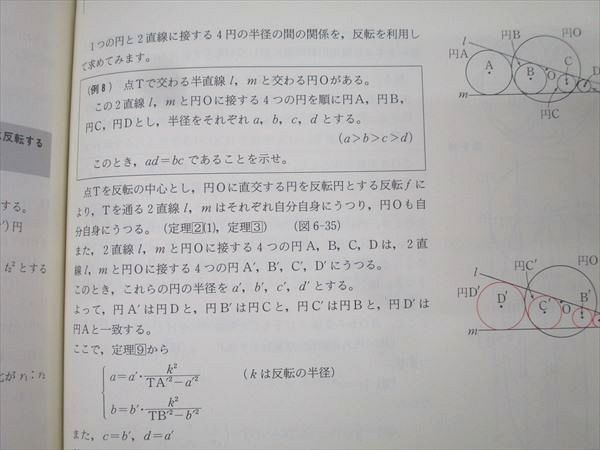 1つの円と2直線に接する4円の半径の間の関係を，反転を利用し
て求めてみます。
(例8) 点Tで交わる半直線 l，m と交わる円Oがある。
この2直線 l，m と円Oに接する4つの円を順に円A，円B，
円C，円Dとし，半径をそれぞれ a，b，c，d とする。
(a>b>c>d)
このとき，ad=bc であることを示せ。
点Tを反転の中心とし，円Oに直交する円を反転円とする反転 f に
より，Tを通る2直線 l，m はそれぞれ自分自身にうつり，円Oも自
分自身にうつる。(定理2(1)，定理3) (図6-35)
また，2直線 l，m と円Oに接する4つの円A，B，C，Dは，2直
線 l，m と円Oに接する4つの円A′，B′，C′，D′にうつる。
このとき，これらの円の半径を a′，b′，c′，d′ とする。
よって，円A′は円Dと，円B′は円Cと，円C′は円Bと，円D′は
円Aと一致する。
ここで，定理9から
a=a′·k²/(TA′²−a′²) (k は反転の半径)
b=b′·k²/(TB′²−b′²)
また，c=b′，d=a′
に反転する
する。
円
とする
が r₁：r₂
l
円A
円B
円O
A
B
O
C
D
円C
m
図6-
l
円C′
円O
円D′
D′
C′
O
B′
m